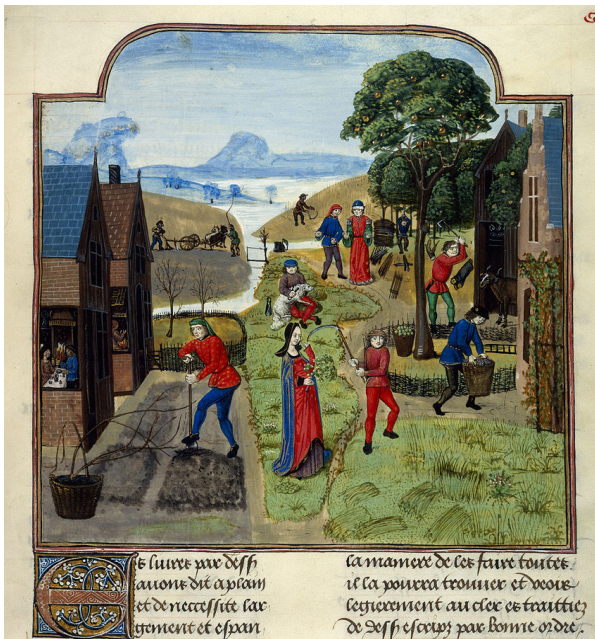 Es liures par dessꝰ
auons dit a plain
et de necessite lar
gement et espan
la maniere de les faire toutes
il la pourra trouuer et veoir
legierement au cler es traittiez
de dessꝰ escripz par bonne ordre.